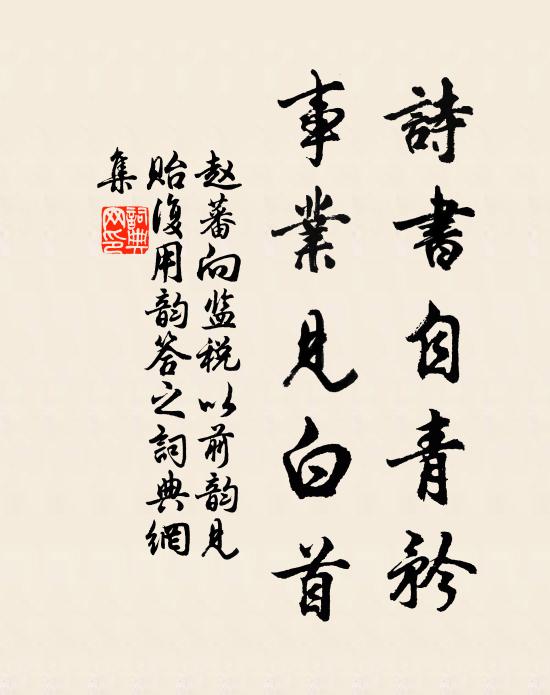 詩書自青衿
事業見白首
赵蕃向监税以前韵见
贻復用韵答之詞典網
集
詞典
网印